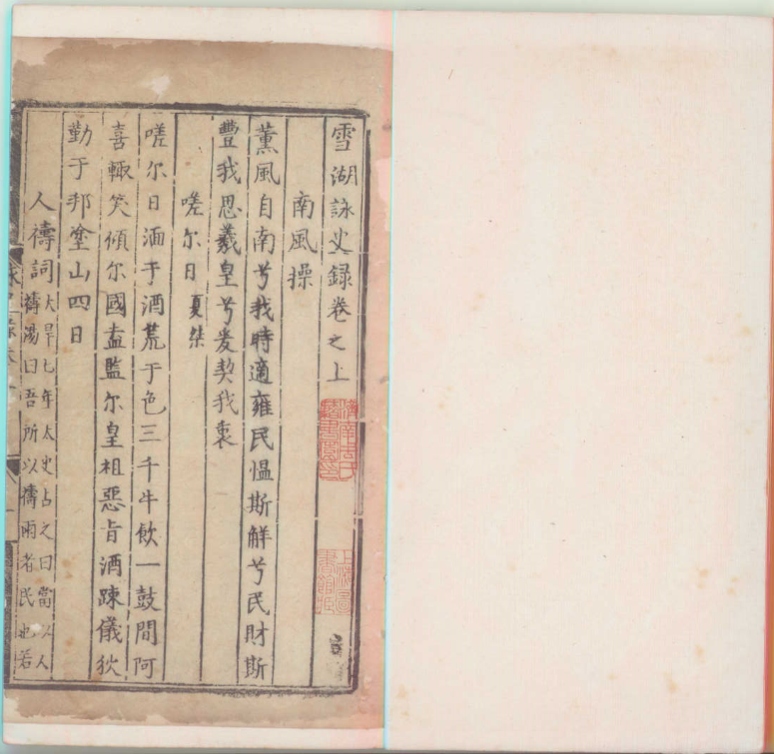 雪湖詠史録卷之上
南風操
薰風自南兮我時適雍民慍斯解兮民財斯
豐我思羲皇兮爰契我衷
嗟尔日夏桀
嗟尔日湎于酒荒于色三千牛飲一鼓間阿
喜輙笑傾尔國盍監尔皇祖惡旨酒踈儀狄
勤于邦塗山四日
人禱詞大旱七年太史占之曰當以人
禱湯曰吾所以禱雨者民也若